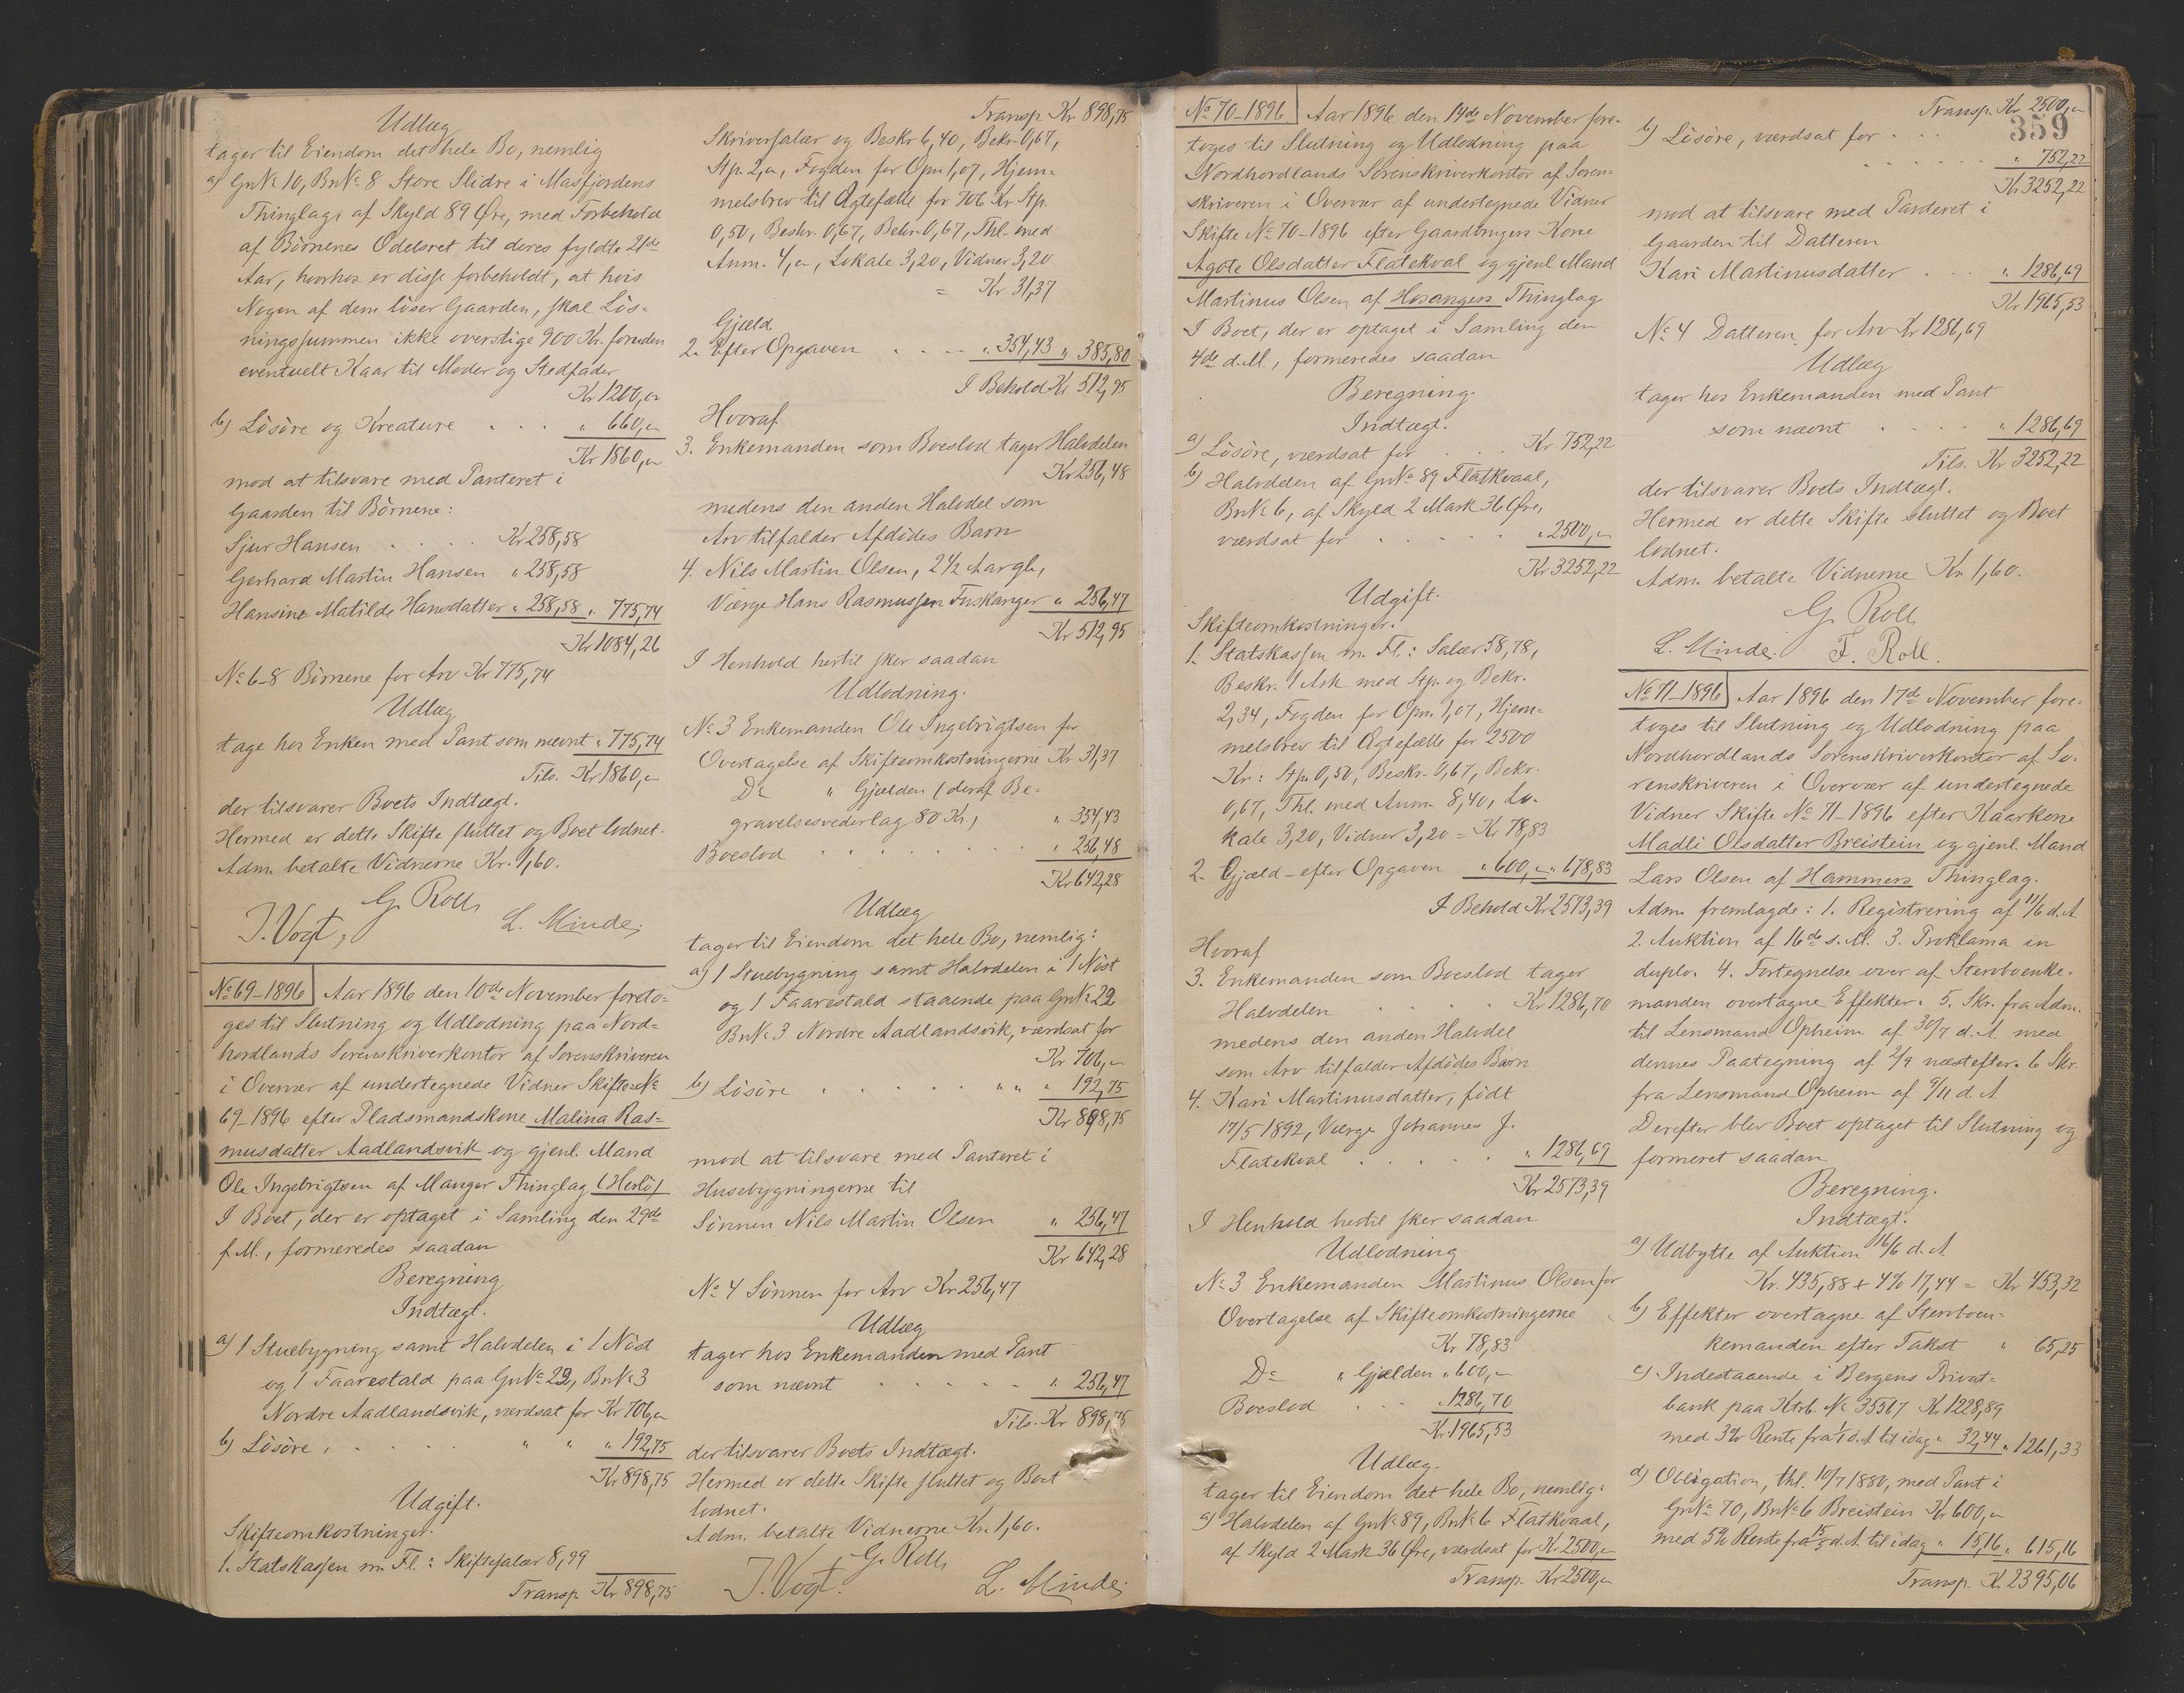 Udlæg
tager til Eiendom det hele Bo, nemlig
a) GnNo 10, BnNo 8 Store Slidre i Masfjordens
Thinglag, af Skyld 89 Øre, med Forbehold
af Börnenes Odelsret til deres fyldte 21de
Aar, hvorhos er disse forbeholdt, at hvis
Nogen af dem löser Gaarden, skal Lös-
ningssummen ikke overstige 900 Kr. foruden
eventuelt Kaar til Moder og Stedfader
Kr 1200,„
b) Lösöre og Kreature . . . „ 660,„
Kr 1860,„
mod at tilsvare med Panteret i
Gaarden til Börnene:
Sjur Hansen . . . . Kr 258,58
Gerhard Martin Hansen „ 258,58
Hansine Matilde Hansdatter „ 258,58 „ 775,74
Kr 1084,26
No 6-8 Börnene for Arv Kr 775,74
Udlæg
tage hos Enken med Pant som nævnt „ 775,74
Tils. Kr 1860,„
der tilsvarer Boets Indtægt.
Hermed er dette Skifte sluttet og Boet lodnet.
Adm. betalte Vidnerne Kr. 1,60.
G. Roll
J. Vogt. L. Minde.
No 69-1896 Aar 1896 den 10de November foreto-
ges til Slutning og Udlodning paa Nord-
hordlands Sorenskriverkontor af Sorenskriveren
i Overvær af undertegnede Vidner Skifte No
69-1896 efter Pladsmandskone Malina Ras-
musdatter Aadlandsvik og gjenl. Mand
Ole Ingebrigtsen af Manger Thinglag (Herlö)
I Boet, der er optaget i Samling den 29de
f.M., formeredes saadan
Beregning
Indtægt.
a) 1 Stuebygning samt Halvdelen i 1 Nöst
og 1 Faarestald paa GnNo 22, BnNo 3
Nordre Aadlandsvik, værdsat for Kr 706,„
b) Lösöre, . . . . „ „ „ 192,75
Kr 898,75
Udgift.
Skifteomkostninger.
1. Statskassen m. Fl.: Skiftesalær 8,99
Transp. Kr 898,75
Transp. Kr 898,75
Skriversalær og Beskr. 6,40, Bekr. 0,67,
Stp. 2,„, Fogden for Opn. 1,07, Hjem-
melsbrev til Ægtefælle for 706 Kr Stp.
0,50, Beskr. 0,67, Bekr. 0,67, Thl. med
Anm. 4,„, Lokale 3,20, Vidner 3,20
= Kr 31,37
Gjæld
2. Efter Opgaven . . . . „ 354,43 „ 385,80
I Behold Kr. 512,95
Hvoraf
3. Enkemanden som Boeslod tager Halvdelen
Kr 256,48
medens den anden Halvdel som
Arv tilfalder Afdödes Barn
4. Nils Martin Olsen, 2 1/2 Aar gl.,
Værge Hans Rasmussen Fuskanger „ 256,47
Kr 512,95
I Henhold hertil sker saadan
Udlodning.
No 3 Enkemanden Ole Ingebrigtsen for
Overtagelse af Skifteomkostningerne Kr 31,37
Do „ Gjælden (deraf Be-
gravelsesvederlag 80 Kr) „ 354,43
Boeslod . . . . . . . . „ 256,48
Kr 642,28
Udlæg
tager til Eiendom det hele Bo, nemlig:
a) 1 Stuebygning samt Halvdelen i 1 Nöst
og 1 Faarestald staaende paa GnNo 22
BnNo 3 Nordre Aadlandsvik, værdsat for
Kr 706,„
b) Lösöre . . . . . „ „ „ 192,75
Kr 898,75
mod at tilsvare med Panteret i
Husebygningerne til
Sönnen Nils Martin Olsen „ 256,47
Kr 642,28
No 4 Sönnen for Arv Kr 256,47
Udlæg
tager hos Enkemanden med Pant
som nævnt . . . . . . „ 256,47
Tils. Kr 898,75
der tilsvarer Boets Indtægt.
Hermed er dette Skifte sluttet og Boet
lodnet.
Adm. betalte Vidnerne Kr. 1,60.
G. Roll
J. Vogt. L. Minde.
No 70-1896 Aar 1896 den 14de November fore-
toges til Slutning og Udlodning paa
Nordhordlands Sorenskriverkontor af Soren-
skriveren i Overvær af undertegnede Vidner
Skifte No 70-1896 efter Gaardbrugers Kone
Agote Olsdatter Flatekval og gjenl. Mand
Martinus Olsen af Hosangers Thinglag
I Boet, der er optaget i Samling den
4de d.M., formeredes saadan
Beregning.
Indtægt.
a) Lösöre, værdsat for . . . Kr 752,22
b) Halvdelen af GnNo 89 Flatkvaal,
BnNo 6, af Skyld 2 Mark 36 Øre,
værdsat for . . . . . „ 2500,„
Kr 3252,22
Udgift.
Skifteomkostninger.
1. Statskassen m. Fl.: Salær 58,78,
Beskr. 1 Ark med Stp. og Bekr.
2,34, Fogden for Opn. 1,07, Hjem-
melsbrev til Ægtefælle for 2500
Kr: Stp. 0,50, Beskr. 0,67, Bekr.
0,67, Thl. med Anm. 8,40, Lo-
kale 3,20, Vidner 3,20 = Kr 78,83
2. Gjæld - efter Opgaven „ 600,„ „ 678,83
I Behold Kr 2573,39
Hvoraf
3. Enkemanden som Boeslod tager
Halvdelen . . . Kr 1286,70
medens den anden Halvdel
som Arv tilfalder Afdödes Barn
4. Kari Martinusdatter, födt
17/5 1892, Værge Johannes J.
Flatekval . . . . . „ 1286,69
Kr 2573,39
I Henhold hertil sker saadan
Udlodning
No 3 Enkemanden Martinus Olsen for
Overtagelse af Skifteomkostningerne
Kr 78,83
Do „ Gjælden „ 600,„
Boeslod . . . „ 1286,70
Kr 1965,53
Udlæg.
tager til Eiendom det hele Bo, nemlig:
a) Halvdelen af GnNo 89, BnNo 6 Flatkvaal,
af Skyld 2 Mark 36 Øre, værdsat for Kr 2500,„
Transp. Kr 2500,„
Transp. Kr 2500,„
359
b) Lösöre, værdsat for . . .
. . . . . . . „ 752,22
Kr 3252,22
mod at tilsvare med Panteret i
Gaarden til Datteren
Kari Martinusdatter . . . „ 1286,69
Kr 1965,53
No 4 Datteren for Arv Kr 1286,69
Udlæg
tager hos Enkemanden med Pant
som nævnt . . . . „ 1286,69
Tils. Kr 3252,22
der tilsvarer Boets Indtægt.
Hermed er dette Skifte sluttet og Boet
lodnet.
Adm. betalte Vidnerne Kr. 1,60.
G. Roll
L. Minde. F. Roll.
No 71-1896 Aar 1896 den 17de November fore-
toges til Slutning og Udlodning paa
Nordhordlands Sorenskriverkontor af So-
renskriveren i Overvær af undertegnede
Vidner Skifte No 71-1896 efter Kaarkone
Madli Olsdatter Breistein og gjenl. Mand
Lars Olsen af Hammers Thinglag.
Adm. fremlagde: 1. Registrering af 11/6 d.A
2. Auktion af 16de s.M. 3. Proklama in
duplo. 4. Fortegnelse over af Stervboenke-
manden overtagne Effekter. 5. Skr. fra Adm.
til Lensmand Opheim af 30/7 d.A. med
dennes Paategning af 2/9 næstefter. 6 Skr.
fra Lensmand Opheim af 9/11 d.A
Derefter blev Boet optaget til Slutning og
formeret saadan
Beregning.
Indtægt.
a) Udbytte af Auktion 16/6 d.A
Kr. 435,88 + 4% 17,44 = Kr 453,32
b) Effekter overtagne af Stervboen-
kemanden efter Takst „ 65,25
c) Indestaaende i Bergens Privat-
bank paa Ktrb. No 35567 Kr 1228,89
med 3% Rente fra 1/1 d.A. til idag „ 32,44 „ 1261,33
d) Obligation, thl. 10/7 1880, med Pant i
GnNo 70, BnNo 6 Breistein Kr 600,„
med 5% Rente fra 15/5 d.A. til idag „ 15,16 „ 615,16
Transp. K. 2395,06